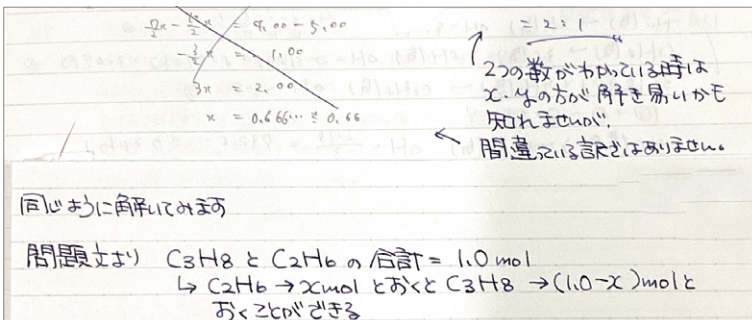 7/2x - 10/2x = 4.00 - 5.00
-3/2x = -1.00
3x = 2.00
x = 0.666… ≒ 0.66
= 2 : 1
2つの数がわかっている時は
x・yの方が解き易いかも
知れませんが、
← 間違っている訳ではありません。
同じように解いてみます
問題文より C3H8 と C2H6 の合計 = 1.0mol
↳ C2H6 → xmol とおくと C3H8 → (1.0-x)molと
おくことができる